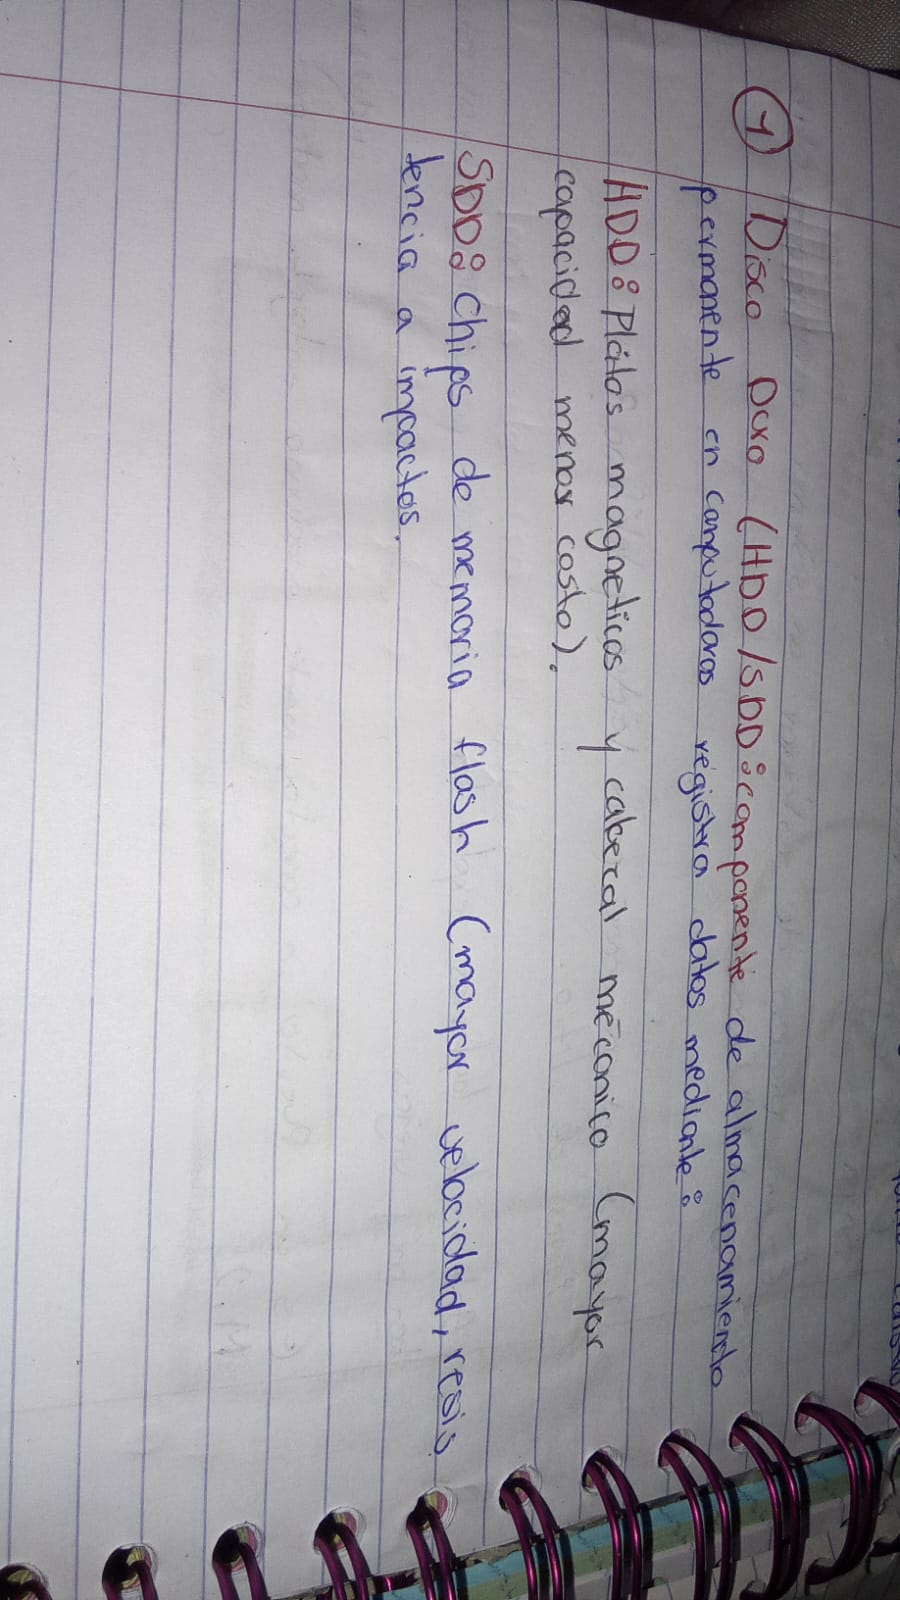 1 Disco Duro (HDD/SDD: componente de almacenamiento
permanente en computadoras registra datos mediante:
HDD: Platos magneticos y cabezal mecanico (mayor
capacidad menor costo).
SDD: Chips de memoria flash (mayor velocidad, resis
tencia a impactos.